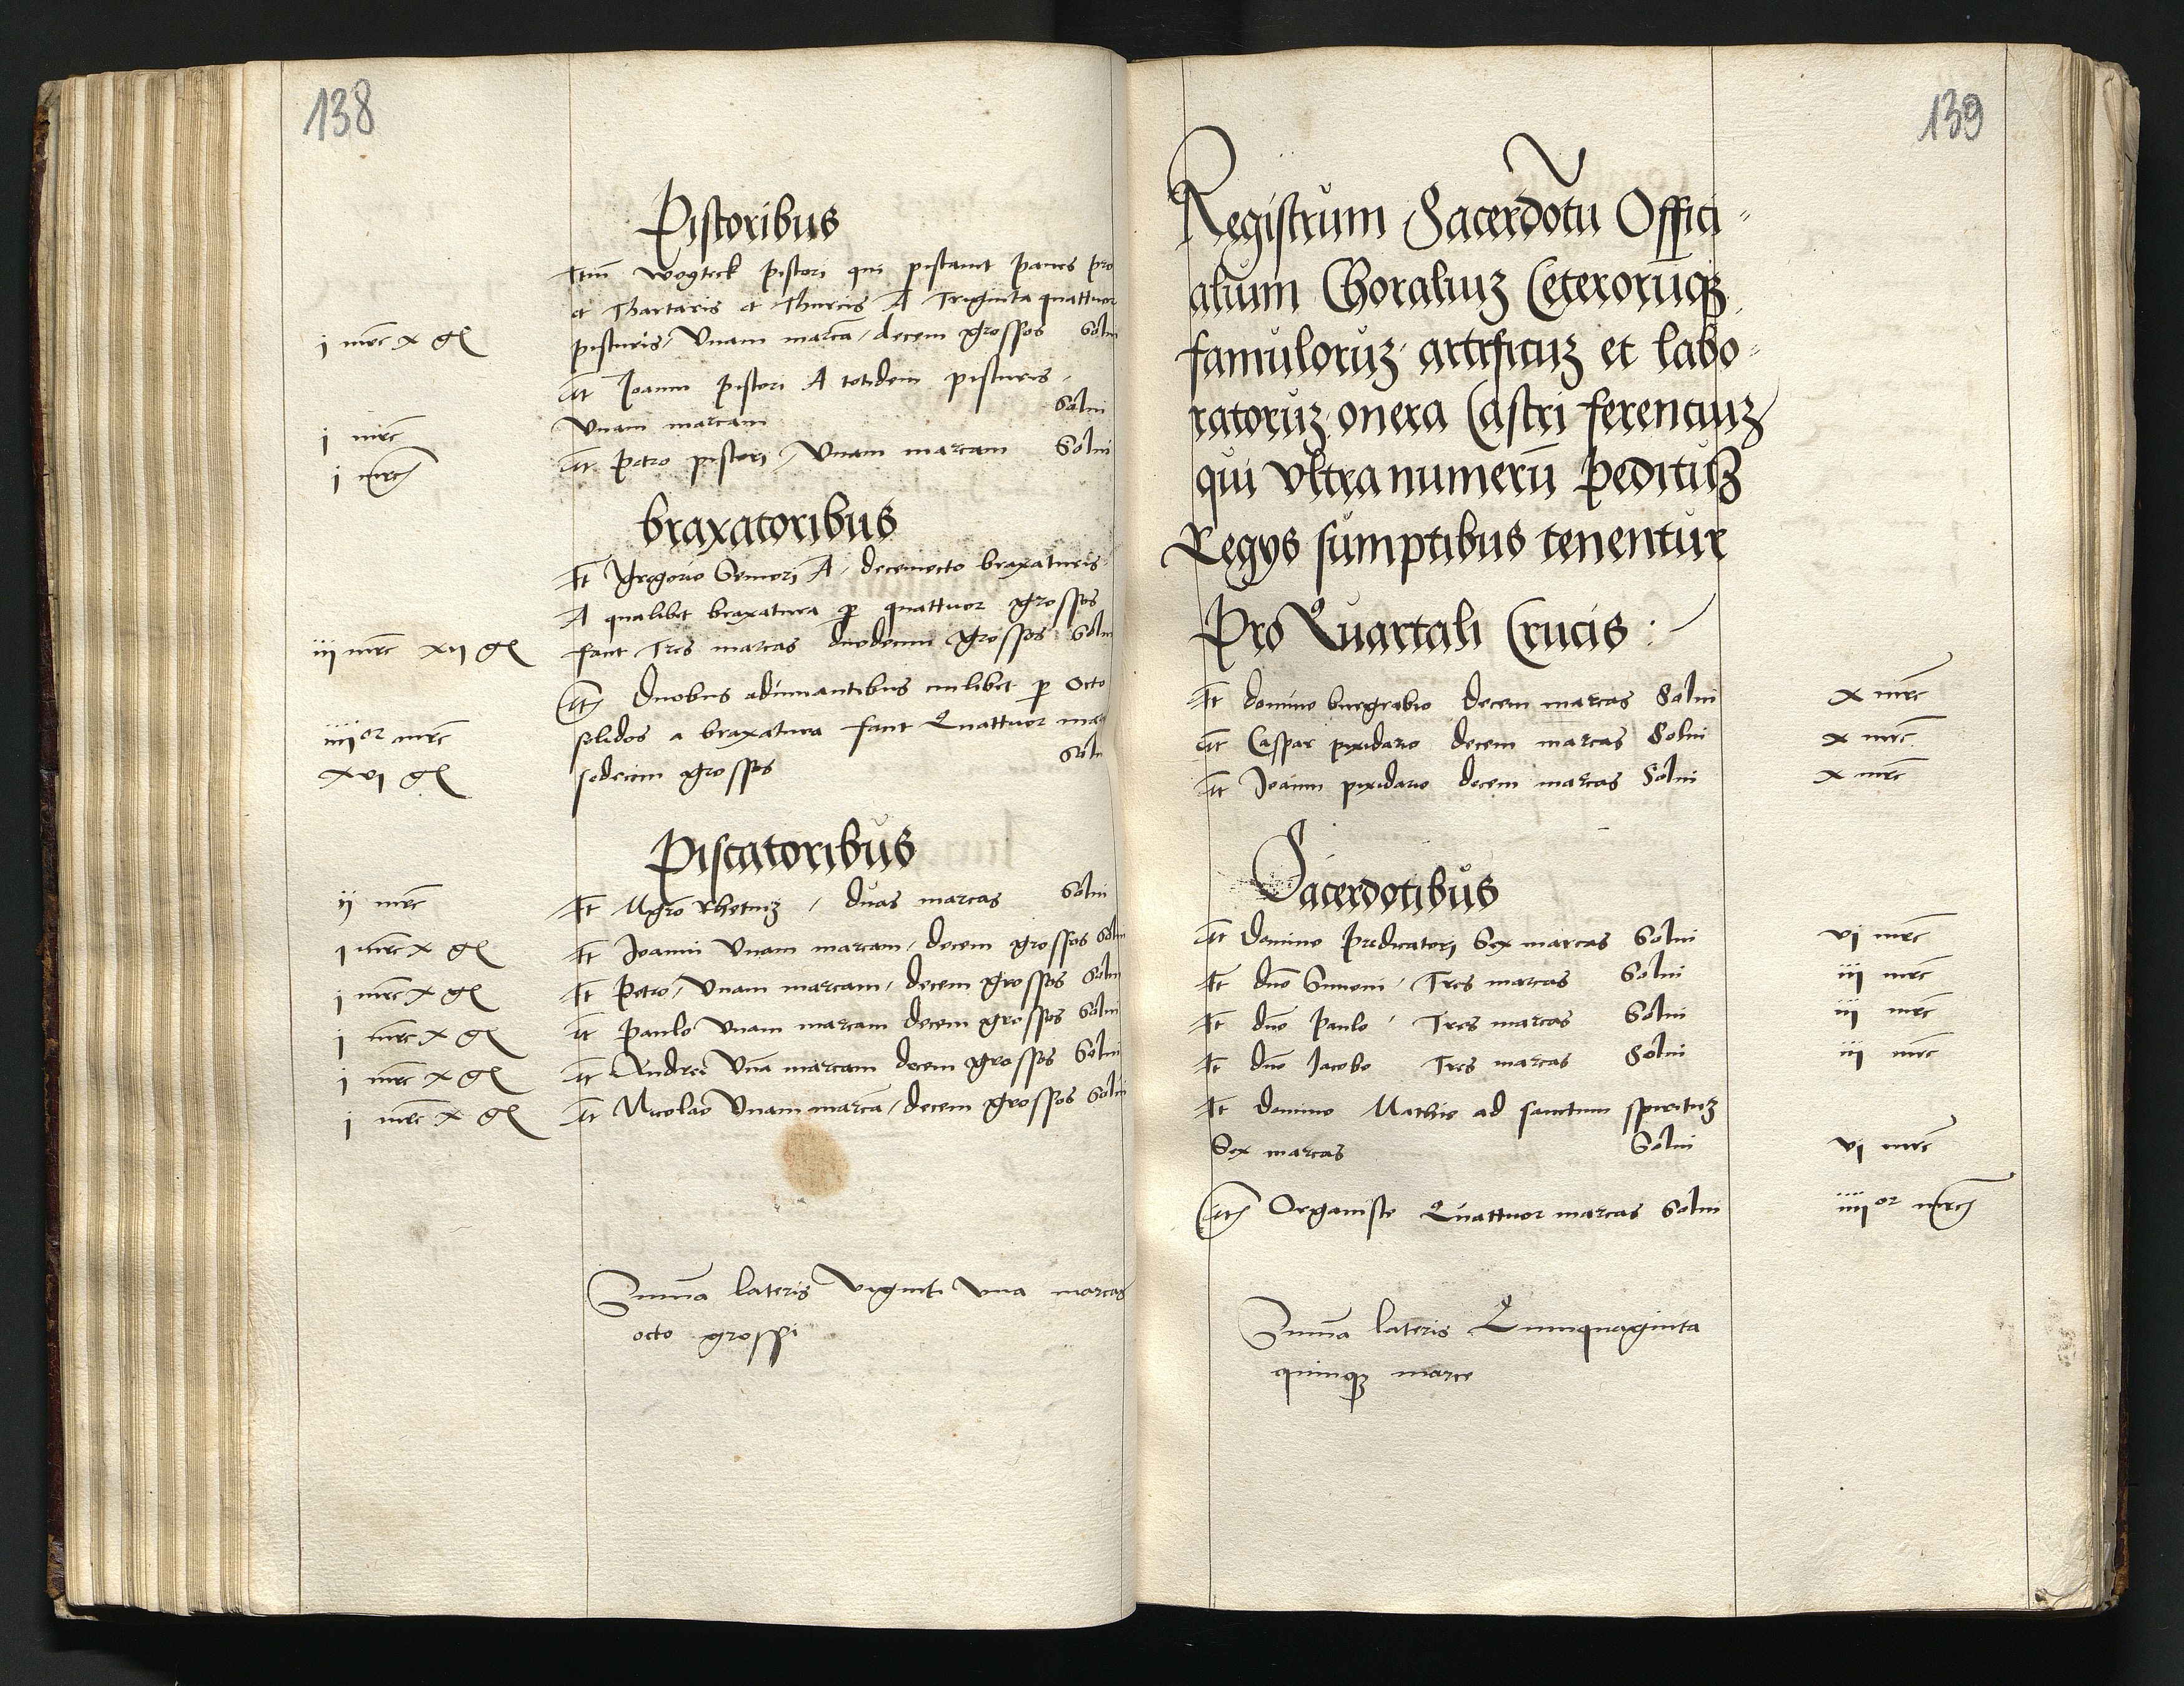 138
Pistoribus
Itm̄ Woyteck pistori qui pistauit panes pro
et Thartaris et Thurcis A Triginta quattuor
j mrc x gͬ pisturis / Vnam marcā / decem grossos Solui
It Joanni pistori A totidem pisturis /
j mrc Vnam marcam Solui
j mrc It Petro pistori / Vnam marcam Solui
braxatoribus
It Gregorio Seniori A / decemocto braxaturis
A qualibet braxatura ꝑ quattuor grossos
iij mrc xij gͬ facit Tres marcas duodecim grossos Solui
It Duobus adiuuantibus cuilibet ꝑ Octo
iiijor mrc solidos a braxatura facit Quattuor mar
xvj gͬ sedecim grossos Solui
Piscatoribus
ij mrc It Mgrō Rhetuȝ / duas marcas Solui
j mrc x gͬ It Joanni Vnam marcam / decem grossos Solui
j mrc x gͬ It Petro / Vnam marcam / decem grossos Solui
j mrc x gͬ It Paulo Vnam marcam decem grossos Solui
j mrc x gͬ It Andree Vnā marcam decem grossos Solui
j mrc x gͬ It Nicolao Vnam marcā / decem grossos Solui
Summa lateris Viginti vna marcas
octo grossi
139
Registrum Sacerdotū Offici=
alium Choraliuȝ Ceteroruqȝ
famuloruȝ artificuȝ et labo=
ratoruȝ onera Castri ferentiuȝ
qui vltra numerū peditūȝ
Regys sumptibus tenentur
Pro Quartali Crucis :
It domino burgrabio decem marcas Solui x mrc
It Caspar pixidario decem marcas Solui x mrc
It Joanni pixidario decem marcas Solui x mrc
Sacerdotibus
It Domino Predicatori Sex marcas Solui vj mrc
It dn̄o Simoni / Tres marcas Solui iij mrc
It dn̄o Paulo / Tres marcas Solui iij mrc
It dn̄o Jacobo Tres marcas Solui iij mrc
It Domino Mathie ad sanctum spirituȝ
Sex marcas Solui vj mrc
It Organiste Quattuor marcas Solui iiijor mrc
Summa lateris Quinquaginta
quinqȝ marce